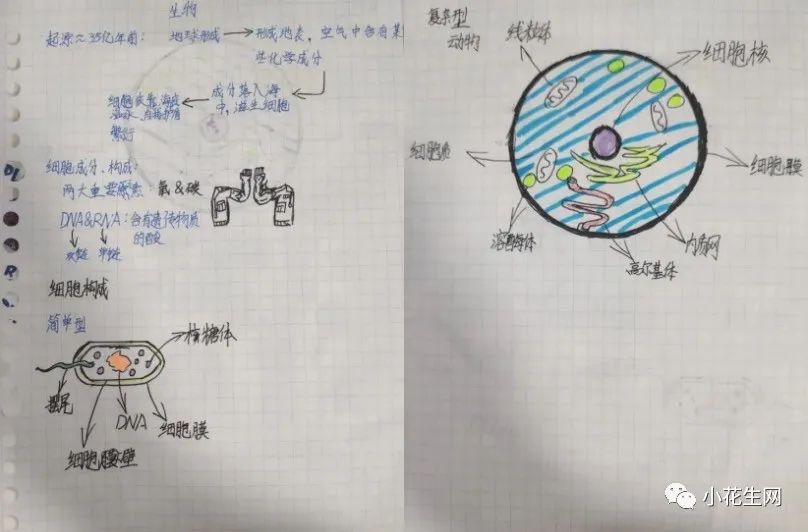 生物
起源≈35亿年前: 地球形成 → 形成地表, 空气中含有某
些化学成分
成分落入海
中, 诞生细胞
细胞
繁衍
细胞成分、构成:
两大重要
: 氧&碳
DNA&RNA: 含有遗传物质
的酸
双链 单链
细胞构成
简单型
核糖体
摆尾
DNA
细胞膜
细胞壁
复杂型
动物
线粒体
细胞核
细胞质
细胞膜
溶酶体
高尔基体
内质网
小花生网